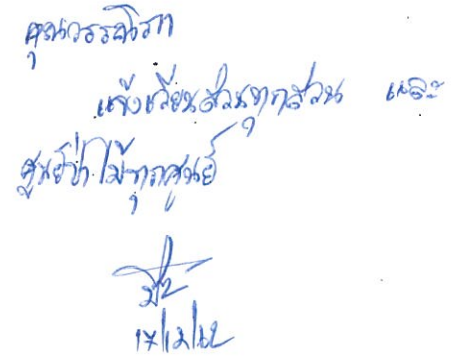 คุณวรรณิภา
แจ้งเวียนส่วนทุกส่วน และ
ศูนย์ป่าไม้ทุกศูนย์